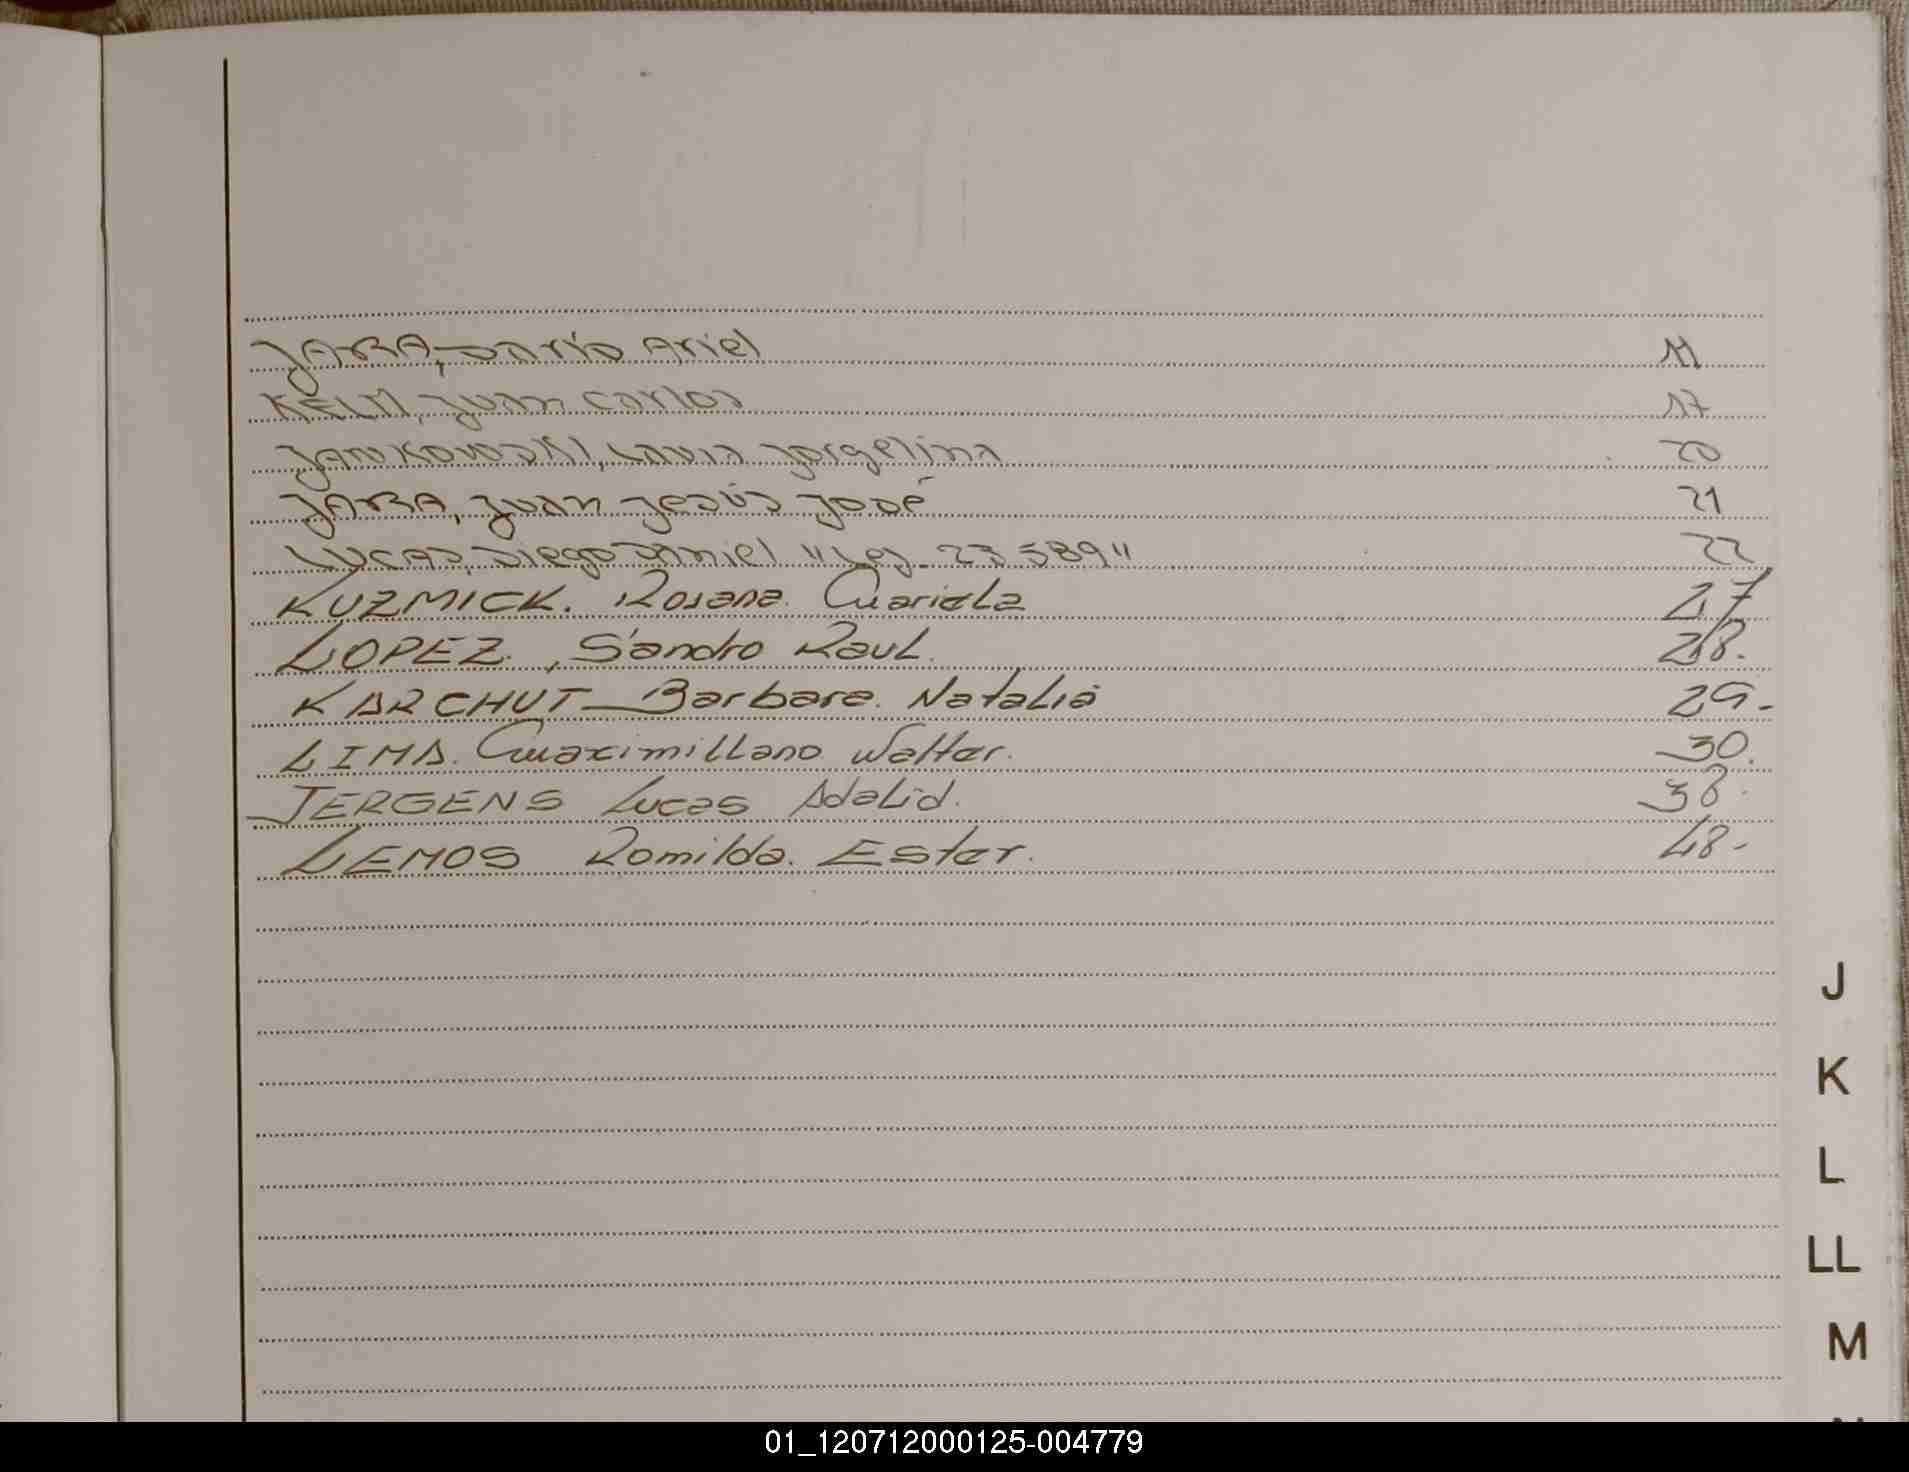 JARA, Darío Ariel 11
KELM, Juan Carlos 17
JANKOWSKI, Laura Jorgelina 20
JARA, Juan Jesús José 21
LUCAS, Diego Daniel "Leg. 23.589" 22
KUZMICK. Rosana. Mariela 27
LOPEZ, Sandro Raul. 28.
KARCHUT - Barbara. Natalia 29.-
LIMA. Maximillano Walter. 30.
JERGENS Lucas Adalid. 38.
LEMOS Romilda. Ester. 48.-
J
K
L
LL
M
01_120712000125-004779